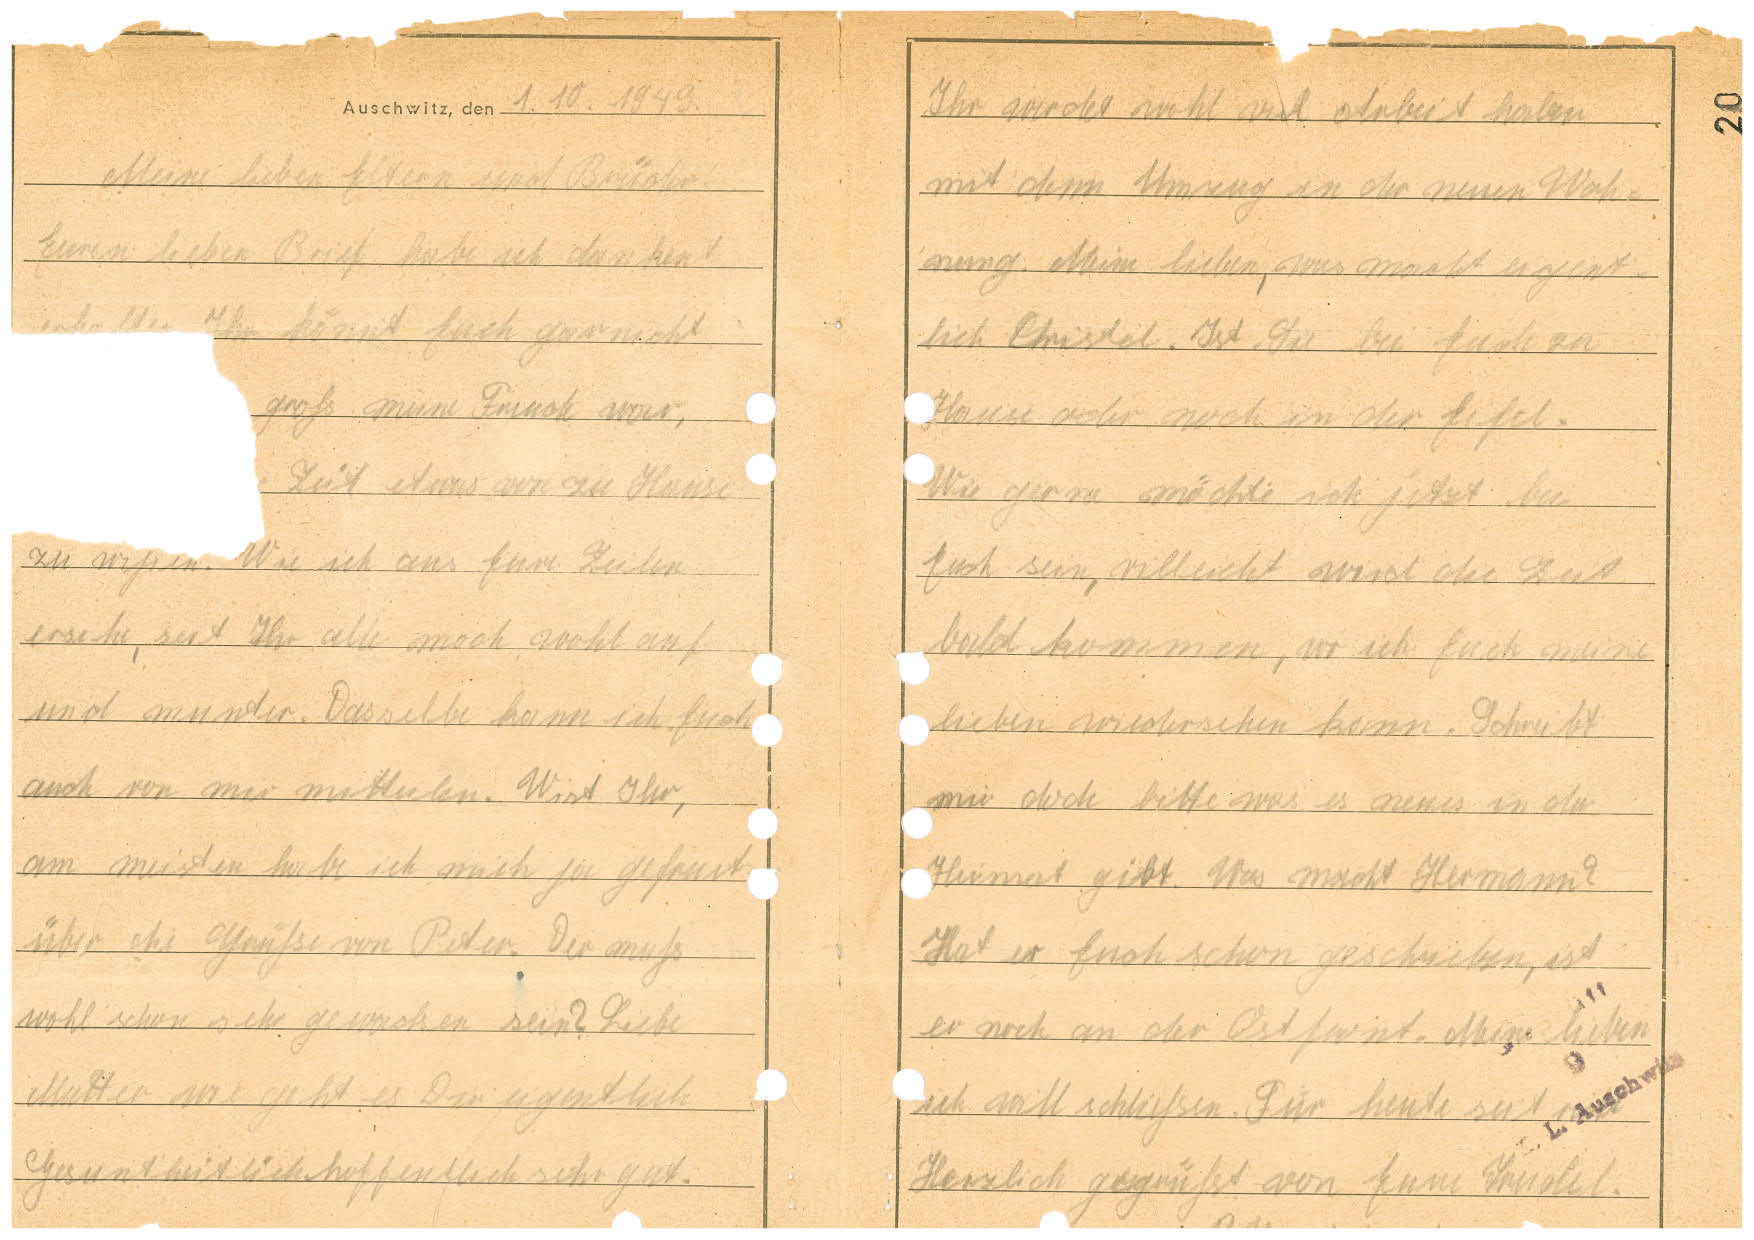 Auschwitz, den 1. 10. 1943.
Meine lieben Eltern und Brüder!
Euren lieben Brief habe ich dankent
erhalten Ihr könnt Euch gar nicht
groß meine Freude war,
Zeit etwas von zu Hause
zu wissen. Wie ich aus Eure Zeilen
ersehe, seit Ihr alle noch wohl auf
und munter. Dasselbe kann ich Euch
auch von mir mitteilen. Wist Ihr,
am meisten habe ich mich ja gefreut
über die Grüße von Peter. Der muß
wohl schon sehr gewachsen sein? Liebe
Mutter wie geht es Dir eigentlich
Gesuntheitlich hoffentlich sehr gut.
Ihr werdet wohl viel Arbeit haben
mit dem Umzug in der neuen Woh-
nung. Meine lieben, was macht eigent-
lich Christel. Ist Sie bei Euch zu
Hause oder noch in der Eifel.
Wie gerne möchte ich jetzt bei
Euch sein, villeicht wird die Zeit
bald kommen, wo ich Euch meine
lieben wiedersehen kann. Schreibt
mir doch bitte was es neues in der
Heimat gibt. Was macht Hermann?
Hat er Euch schon geschrieben, ist
er noch an der Ostfront. Meine lieben
ich will schließen. Für heute seit
Herzlich gegrüßt von Eure Trudel.
20
9
L. Auschwitz